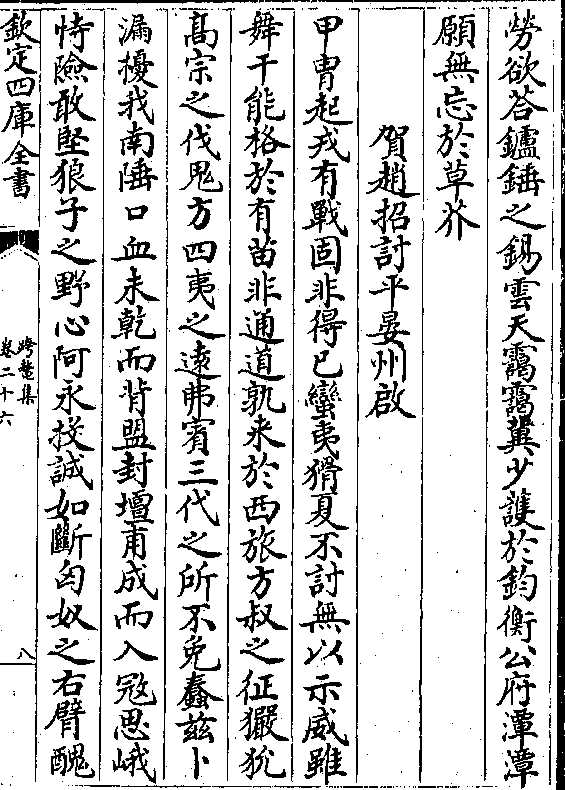 勞欲荅鑪錘之錫雲天靄靄冀少䕶於鈞衡公府潭潭
願無忘於草芥
賀趙招討平晏州啟
甲胄起戎有戰固非得已蠻夷猾夏不討無以示威雖
舞干能格於有苗非通道孰来於西旅方叔之征玁狁
髙宗之伐鬼方四夷之逺弗賓三代之所不免蠢兹卜
漏擾我南陲口血未乾而背盟封壇甫成而入冦思峨
恃險敢堅狼子之野心阿永投誠如斷匈奴之右臂醜
欽定四庫全書
跨鼇集
卷二十六
八